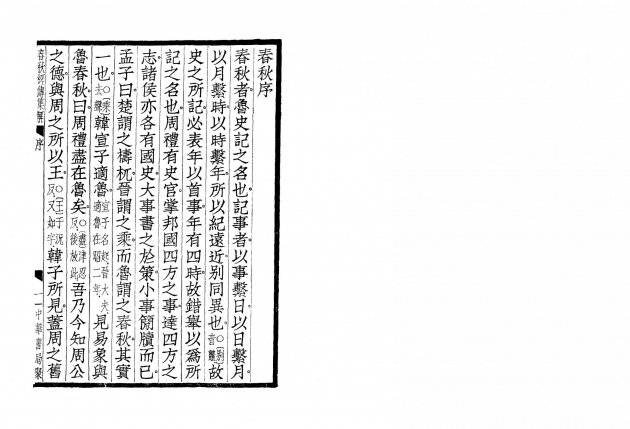 春秋序
春秋者魯史記之名也記事者以事繫日以日繫月
以月繫時以時繫年所以紀遠近別同異也故
史之所記必表年以首事年有四時故錯舉以為所
記之名也周禮有史官掌邦國四方之事達四方之
志諸侯亦各有國史大事書之於策小事簡牘而已
孟子曰楚謂之檮杌晉謂之乘而魯謂之春秋其實
一也○乘去聲韓宣子適魯宣子名起晉大夫適魯在昭二年見易象與
魯春秋曰周禮盡在魯矣○盡津忍反後放此吾乃今知周公
之德與周之所以王○王于況反又如字韓子所見蓋周之舊
春秋經傳集解 序 一 中華書局聚